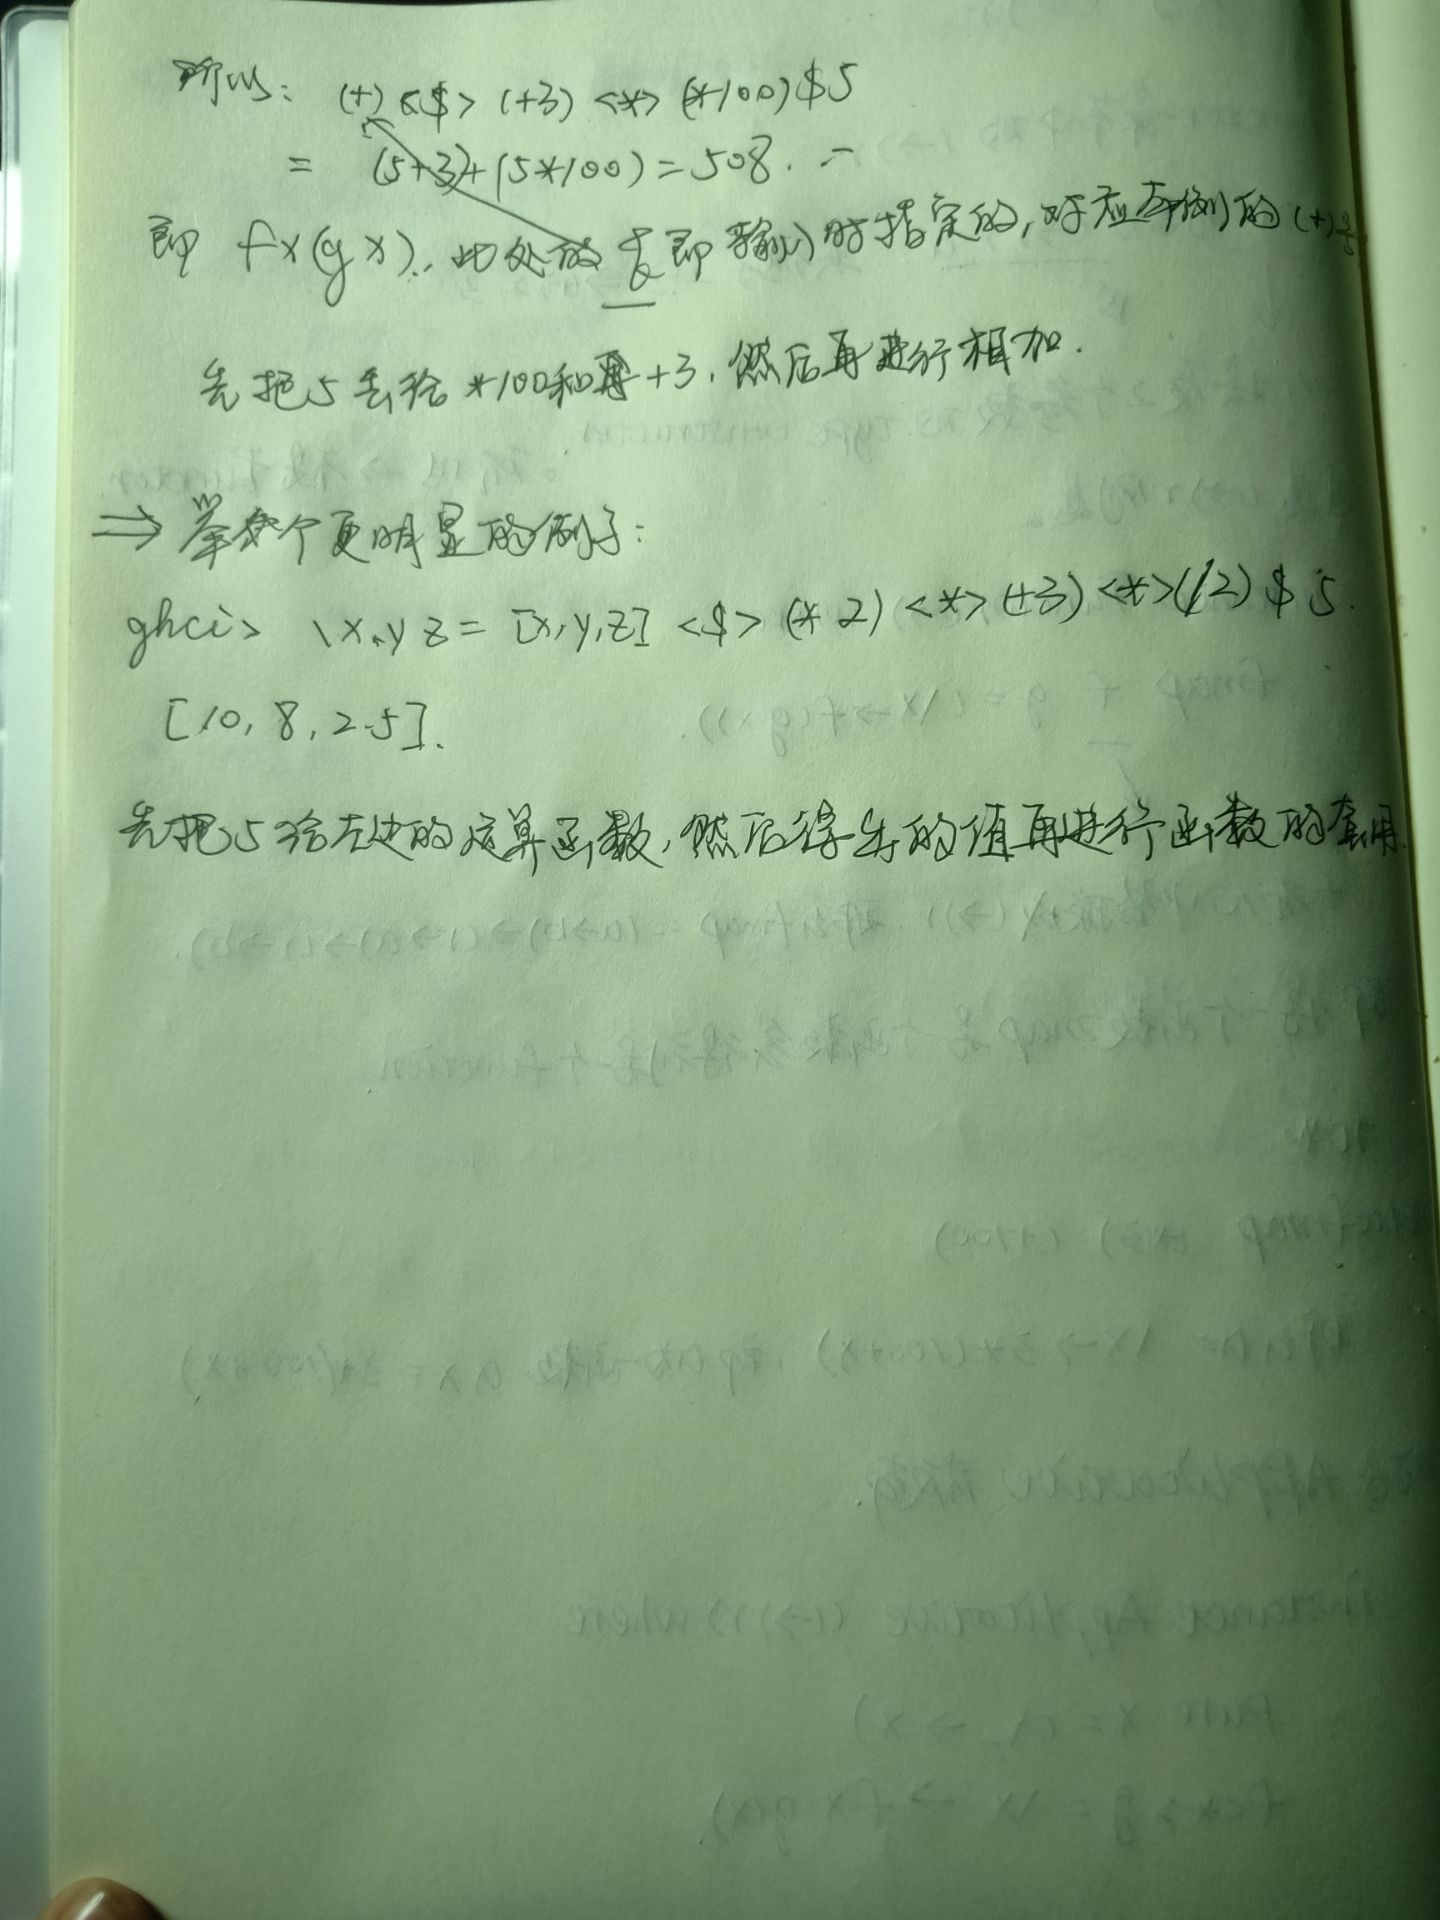 所以: (+) <$> (+3) <*> (*100) $ 5
= (5+3)+(5*100)=508.
即 f x (g x), 此处的 f 即输入时指定的, 对应本例的 (+)
先把5丢给 *100和 +3, 然后再进行相加.
⇒ 举个更明显的例子:
ghci> \x,y z = [x,y,z] <$> (* 2) <*> (+3) <*> (/2) $ 5.
[10, 8, 2.5].
先把5给左边的运算函数, 然后得出的值再进行函数的套用.